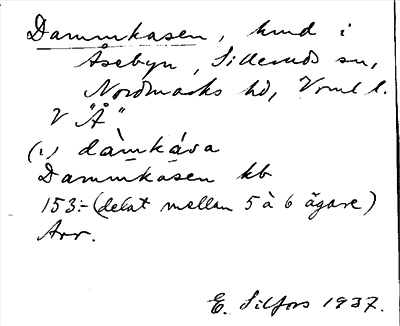 Dammkasen, hmd i
Åsebyn, Sillerud sn,
Nordmarks hd, Vrml l.
V "Å"
(i) dàmkása
Dammkåsen kb
153:- (delat mellan 5 à 6 ägare)
Arr.
E. Silfors 1937.